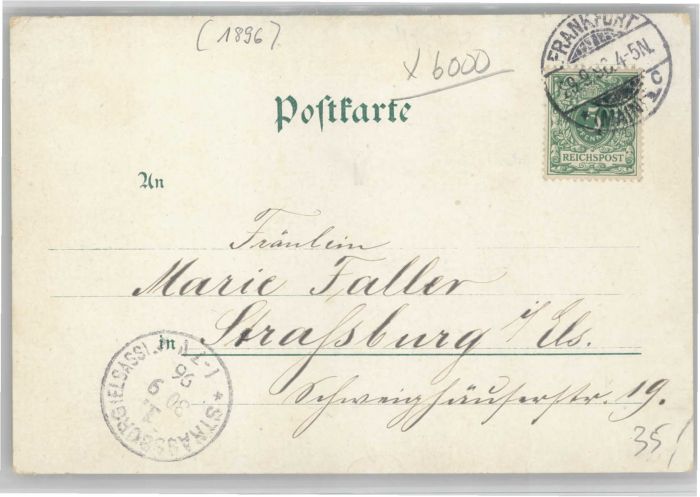 (1896)
x 6000
FRANKFURT
9.96.4-5N.
MAIN
Postkarte
REICHSPOST
An
Fräulein
Marie Faller
in Straßburg i/Els.
Schweighäuserstr. 19.
STRASSBURG (ELSASS)
30 9
96
35